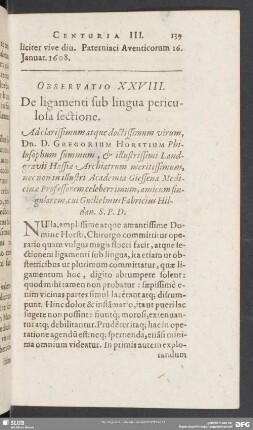 CENTURIA III. 139
liciter vive diu. Paterniaci Aventicorum 16.
Januar. 1608.
OBSERVATIO XXVIII.
De ligamenti sub lingua pericu-
losa sectione.
Ad clarissimum atque doctissimum virum,
DN. D. GREGORIUM HORSTIUM Phi-
losophum summum, & illustrissimi Land-
gravii Hassiæ Archiatrum meritissimum,
nec non in illustri Academia Giessena Medi-
cinæ Professorem celeberrimum, amicum sin-
gularem, cui Guilhelmus Fabricius Hil-
dan. S. P. D.
NUlla, amplissime atque amantissime Do-
mine Horsti, Chirurgo committitur ope-
ratio quam vulgus magis flocci facit, atque se-
ctionem ligamenti sub lingua, ita etiam ut ob-
stetricibus ut plurimum committatur, quæ li-
gamentum hoc, digito abrumpere solent:
quod mihi tamen non probatur: sæpissimè e-
nim vicinas partes simul lacerant atq; disrum-
punt. Hinc dolor & inflāmatio, ita ut pueri lac
sugere non possint: fiuntq; morosi, extenuan-
tur atq; debilitantur. Prudēter itaq; hac in ope-
ratione agendū est: neq; spernenda, etiāsi mini-
ma omnium videatur. In primis autem explo-
randum
SLUB
DFG